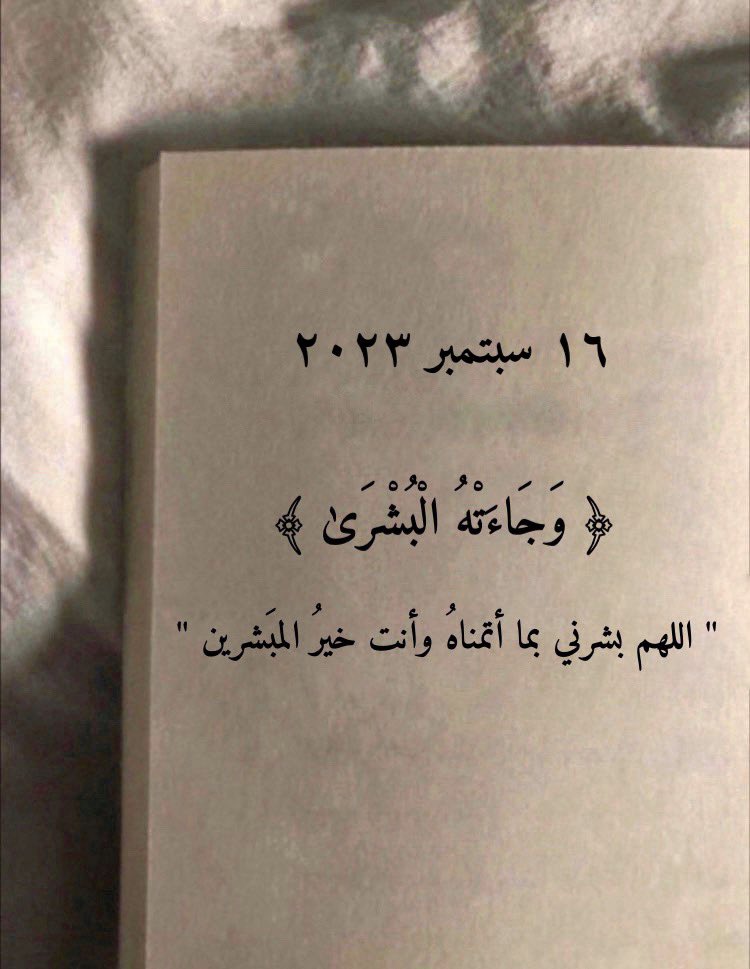 ١٦ سبتمبر ٢٠٢٣
﴿ وَجَاءَتْهُ الْبُشْرَىٰ ﴾
" اللهم بشرني بما أتمناهُ وأنت خيرُ المبَشرين "